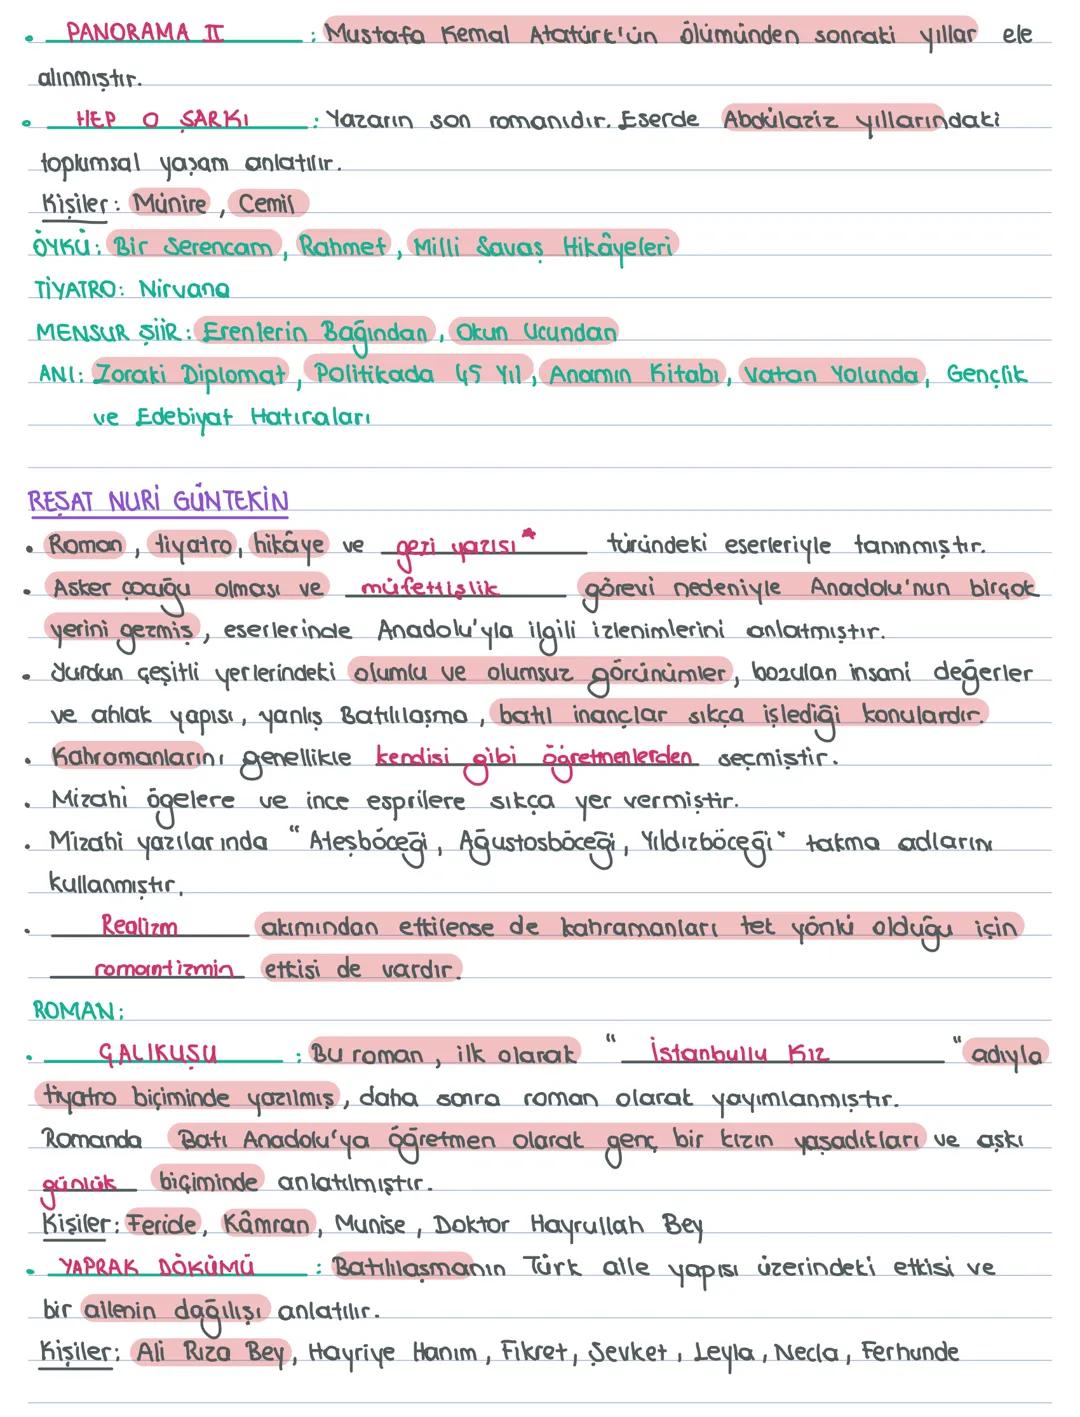 • PANORAMA II : Mustafa Kemal Atatürk'ün ölümünden sonraki yıllar ele
alınmıştır.
• HEP O ŞARKI : Yazarın son romanıdır. Eserde Abdülaziz yıllarındaki
toplumsal yaşam anlatılır.
Kişiler: Münire, Cemil
ÖYKÜ: Bir Serencam, Rahmet, Milli Savaş Hikâyeleri
TİYATRO: Nirvana
MENSUR ŞİİR: Erenlerin Bağından, Okun Ucundan
ANI: Zoraki Diplomat, Politikada 45 Yıl, Anamın Kitabı, Vatan Yolunda, Gençlik
ve Edebiyat Hatıraları
REŞAT NURİ GÜNTEKİN
• Roman, tiyatro, hikâye ve gezi yazısı* türündeki eserleriyle tanınmıştır.
• Asker çocuğu olması ve müfettişlik görevi nedeniyle Anadolu'nun birçok
yerini gezmiş, eserlerinde Anadolu'yla ilgili izlenimlerini anlatmıştır.
• Yurdun çeşitli yerlerindeki olumlu ve olumsuz görünümler, bozulan insani değerler
ve ahlak yapısı, yanlış Batılılaşma, batıl inançlar sıkça işlediği konulardır.
• Kahramanlarını genellikle kendisi gibi öğretmenlerden seçmiştir.
• Mizahi ögelere ve ince esprilere sıkça yer vermiştir.
• Mizahi yazılarında "Ateşböceği, Ağustosböceği, Yıldızböceği" takma adlarını
kullanmıştır.
• Realizm akımından etkilense de kahramanları tek yönlü olduğu için
romantizmin etkisi de vardır.
ROMAN:
• ÇALIKUŞU : Bu roman, ilk olarak "İstanbullu Kız" adıyla
tiyatro biçiminde yazılmış, daha sonra roman olarak yayımlanmıştır.
Romanda Batı Anadolu'ya öğretmen olarak genç bir kızın yaşadıkları ve aşkı
günlük biçiminde anlatılmıştır.
Kişiler: Feride, Kâmran, Munise, Doktor Hayrullah Bey
• YAPRAK DÖKÜMÜ : Batılılaşmanın Türk aile yapısı üzerindeki etkisi ve
bir ailenin dağılışı anlatılır.
Kişiler: Ali Rıza Bey, Hayriye Hanım, Fikret, Şevket, Leyla, Necla, Ferhunde